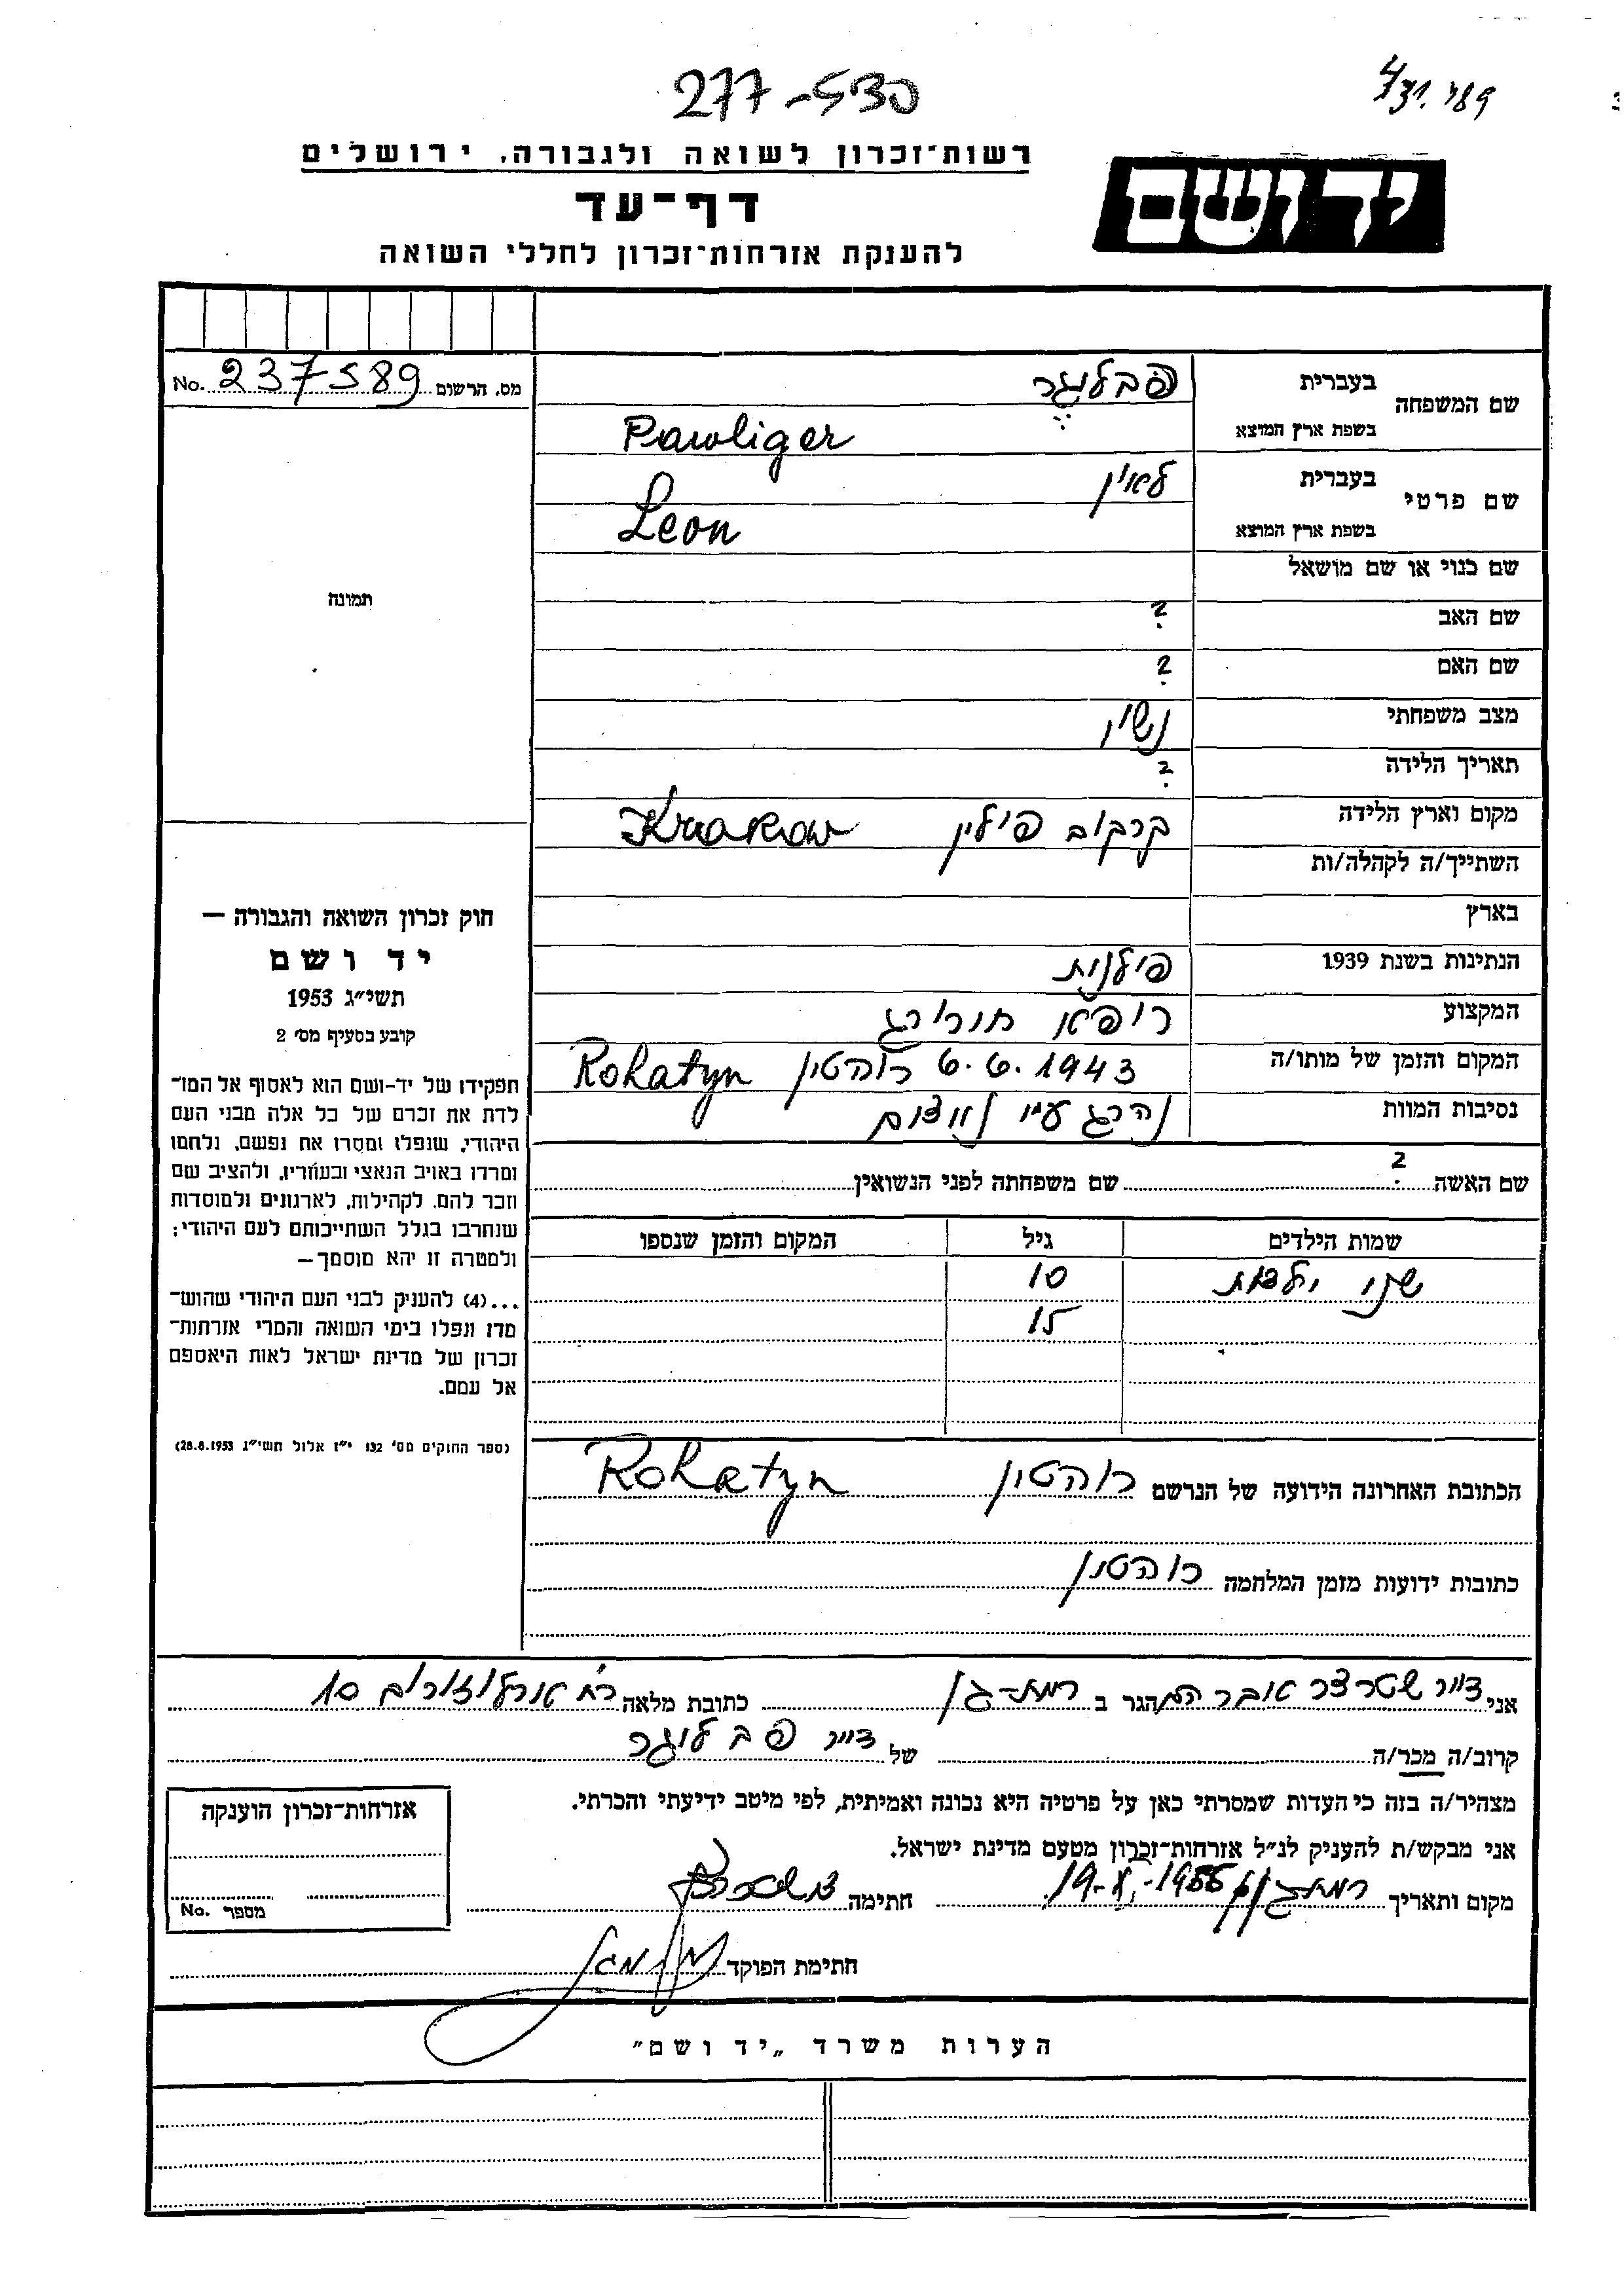 277-530
רשות־זכרון לשואה ולגבורה, ירושלים
יד ושם
דף־עד
להענקת אזרחות־זכרון לחללי השואה
מס. הרשום No. 237589
שם המשפחה
בעברית פבליגר
בשפת ארץ המוצא Pawliger
שם פרטי
בעברית לאון
בשפת ארץ המוצא Leon
שם כנוי או שם מושאל
שם האב ?
שם האם ?
מצב משפחתי נשוי
תאריך הלידה ?
מקום וארץ הלידה קרקוב פולין Krakow
השתייך/ה לקהלה/ות
בארץ
הנתינות בשנת 1939 פולנית
המקצוע רופא חורורג
המקום והזמן של מותו/ה 6.6.1943 רוהטין Rohatyn
נסיבות המוות נהרג ע״י נאצים
שם האשה ? שם משפחתה לפני הנשואין
שמות הילדים גיל המקום והזמן שנספו
שתי ילדות 10
15
הכתובת האחרונה הידועה של הנרשם רוהטין Rohatyn
כתובות ידועות מזמן המלחמה רוהטין
תמונה
חוק זכרון השואה והגבורה —
יד ושם
תשי״ג 1953
קובע בסעיף מס׳ 2
תפקידו של יד-ושם הוא לאסוף אל המו־
לדת את זכרם של כל אלה מבני העם
היהודי, שנפלו ומסרו את נפשם, נלחמו
ומרדו באויב הנאצי ובעוזריו, ולהציב שם
וזכר להם, לקהילות, לארגונים ולמוסדות
שנחרבו בגלל השתייכותם לעם היהודי;
ולמטרה זו יהא מוסמך—
...(4) להעניק לבני העם היהודי שהוש־
מדו ונפלו בימי השואה והמרי אזרחות־
זכרון של מדינת ישראל לאות היאספם
אל עמם.
(ספר החוקים מס׳ 132 י״ז אלול תשי״ג 28.8.1953)
אני הגר ב רמת-גן כתובת מלאה רח׳ ארלוזורוב 10
קרוב/ה מכר/ה של פבליגר
מצהיר/ה בזה כי העדות שמסרתי כאן על פרטיה היא נכונה ואמיתית, לפי מיטב ידיעתי והכרתי.
אני מבקש/ת להעניק לנ״ל אזרחות־זכרון מטעם מדינת ישראל.
מקום ותאריך רמת-גן חתימה
חתימת הפוקד
אזרחות־זכרון הוענקה
מספר No.
הערות משרד „יד ושם״